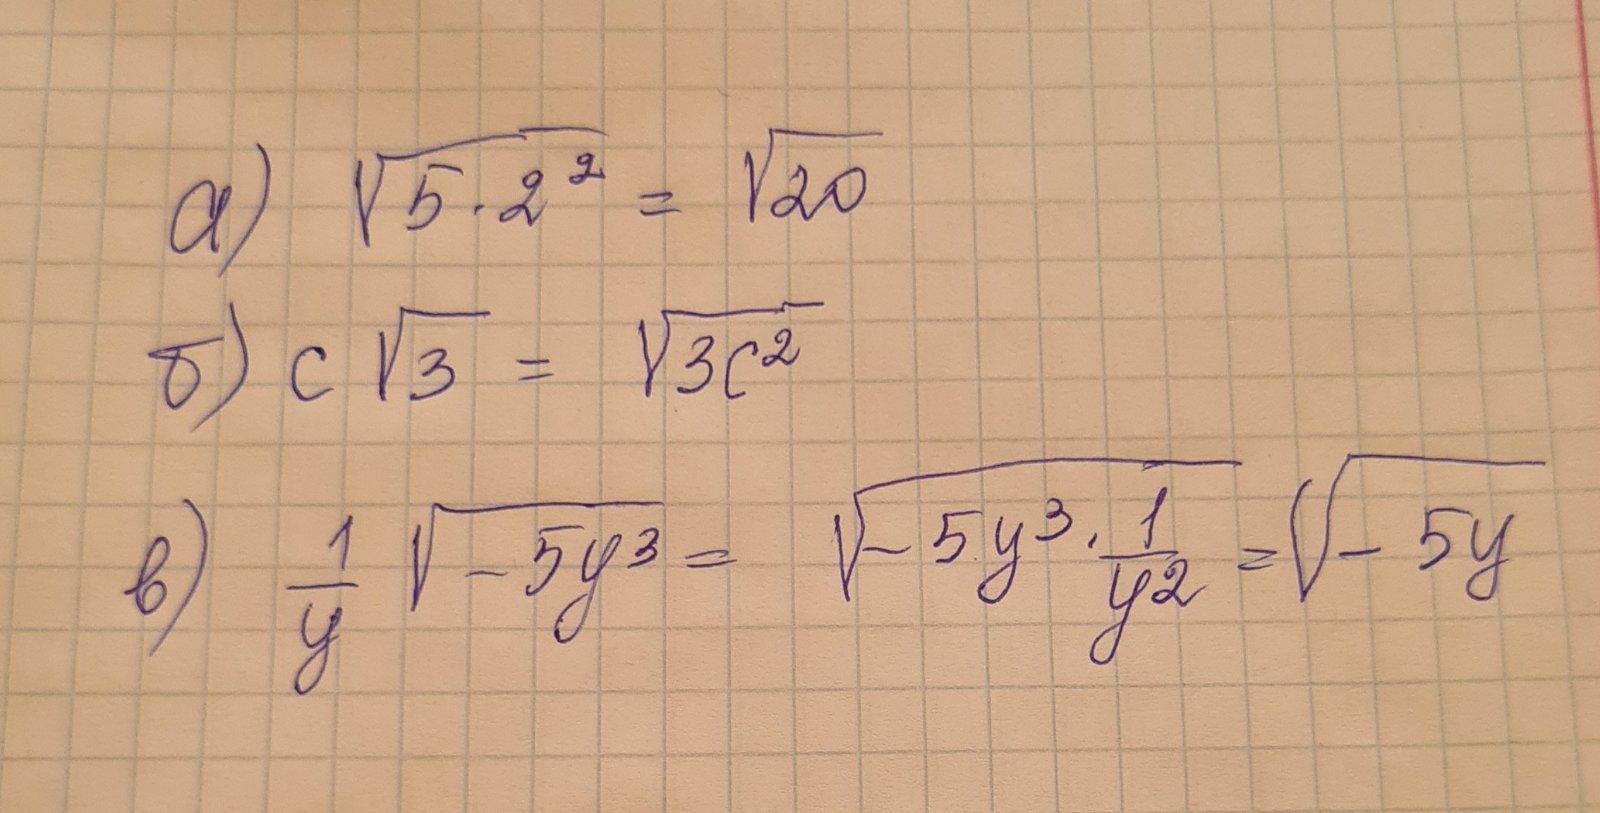 а) √5·2² = √20
б) c √3 = √3c²
в) 1/y √-5y³ = √-5y³·1/y² = √-5y